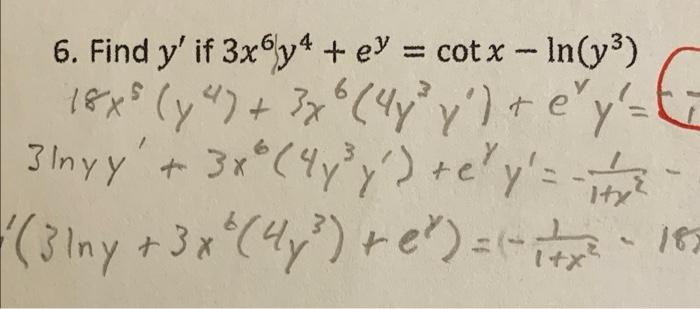 6. Find y′ if 3x⁶y⁴ + eʸ = cot x − ln(y³)
18x⁵(y⁴) + 3x⁶(4y³y′) + eʸy′ =
3lnyy′ + 3x⁶(4y³y′) + eʸy′ = -1/1+x² -
′(3lny + 3x⁶(4y³) + eʸ) = (-1/1+x² - 18